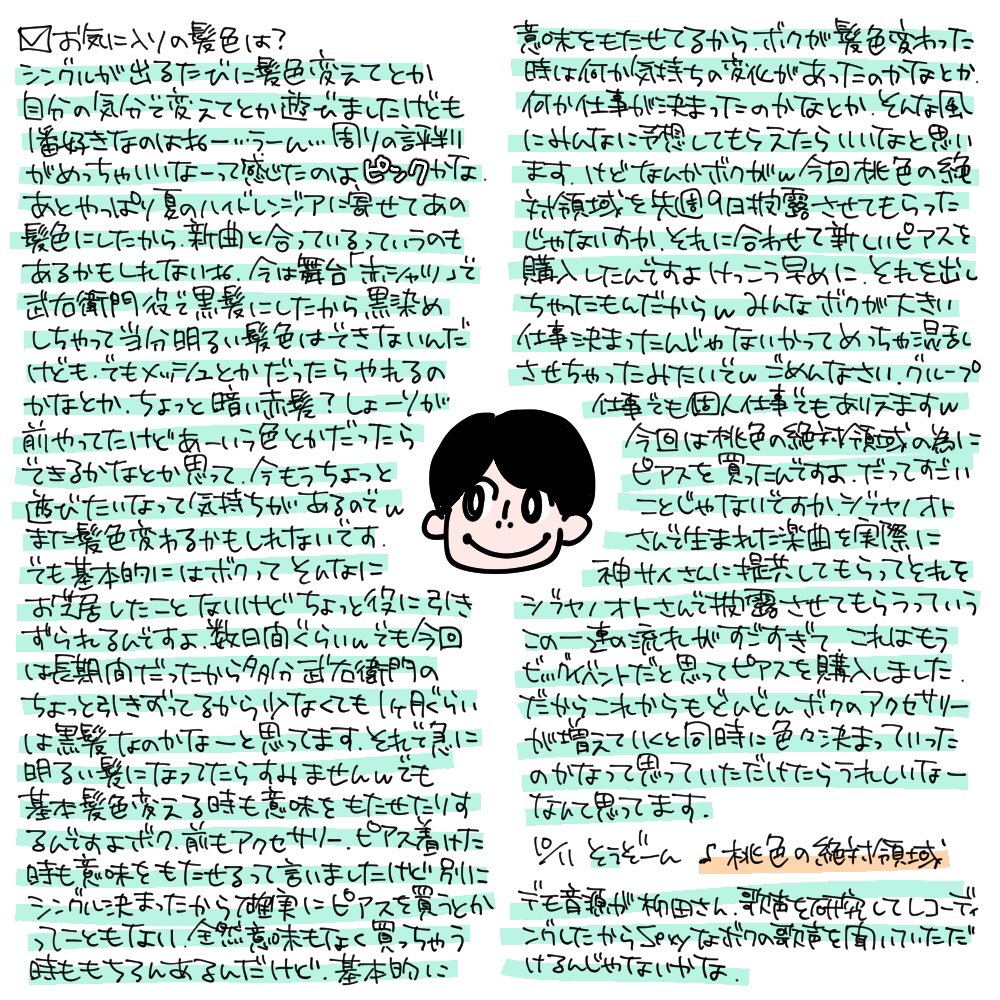 お気に入りの髪色は?
シングルが出るたびに髪色変えてとか
自分の気分で変えてとか遊びましたけども
1番好きなのはねー…うーん…周りの評判
がめっちゃいいなーって感じたのは、ピンクかな.
あとやっぱり夏のハイドレンジアに寄せてあの
髪色にしたから、新曲と合っているっていうのも
あるかもしれないね. 今は舞台「赤シャツ」で
武右衛門役で黒髪にしたから黒染め
しちゃって当分明るい髪色はできないんだ
けども.でもメッシュとかだったらやれるの
かなとか.ちょっと暗い赤髪?しょーりが
前やってたけどあーいう色とかだったら
できるかなとか思って、今もうちょっと
遊びたいなって気持ちがあるのでw
また髪色変わるかもしれないです.
でも基本的にはボクってそんなに
お芝居したことないけどちょっと役に引き
ずられるんですよ.数日間ぐらいwでも今回
は長期間だったから多分武右衛門の
ちょっと引きずってるから少なくても1ヶ月ぐらい
は黒髪なのかなーと思ってます.それで急に
明るい髪になってたらすみませんwでも
基本髪色変える時も意味をもたせたりす
るんですよボク.前もアクセサリー.ピアス着けた
時も意味をもたせるって言いましたけど別に
シングル決まったから確実にピアスを買うとか
ってこともない.全然意味もなく買っちゃう
時ももちろんあるんだけど.基本的に
意味をもたせてるから.ボクが髪色変わった
時は何か気持ちの変化があったのかなとか.
何か仕事が決まったのかなとか.そんな風
にみんなに予想してもらえたらいいなと思い
ます.けどなんかボクがw今回桃色の絶
対領域を先週9日披露させてもらった
じゃないすか.それに合わせて新しいピアスを
購入したんですよけっこう早めに.それを出し
ちゃったもんだからwみんなボクが大きい
仕事決まったんじゃないかってめっちゃ混乱
させちゃったみたいでwごめんなさい.グループ
仕事でも個人仕事でもありえますw
今回は桃色の絶対領域の為に
ピアスを買ったんですよ.だってすごい
ことじゃないですか.シブヤノオト
さんで生まれた楽曲を実際に
神サイさんに提供してもらってそれを
シブヤノオトさんで披露させてもらうっていう
この一連の流れがすごすぎて、これはもう
ビッグイベントだと思ってピアスを購入しました.
だからこれからもどんどんボクのアクセサリー
が増えていくと同時に色々決まっていった
のかなって思っていただけたらうれしいなー
なんて思ってます.
10/11 そうぞーん ♪桃色の絶対領域
デモ音源が柳田さん.歌声を研究してレコーディ
ングしたからSexyなボクの歌声を聞いていただ
けるんじゃないかな.